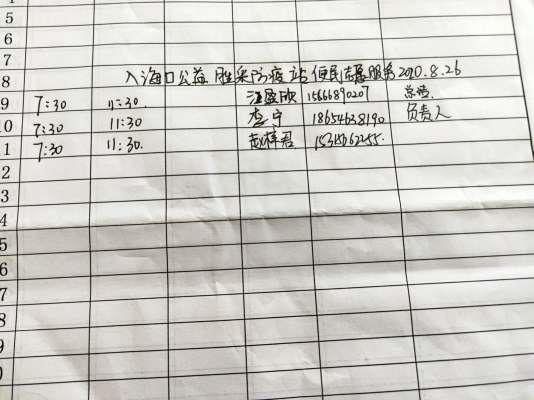 4
5
6
7
8 入海口公益胜采防疫站便民志愿服务2020.8.26
9 7:30 11:30. 汪盈欣 15666890207 总结
10 7:30 11:30 李宁 18654638190 负责人
11 7:30 11:30. 赵梓君
12
13
14
15
16
17
18
19